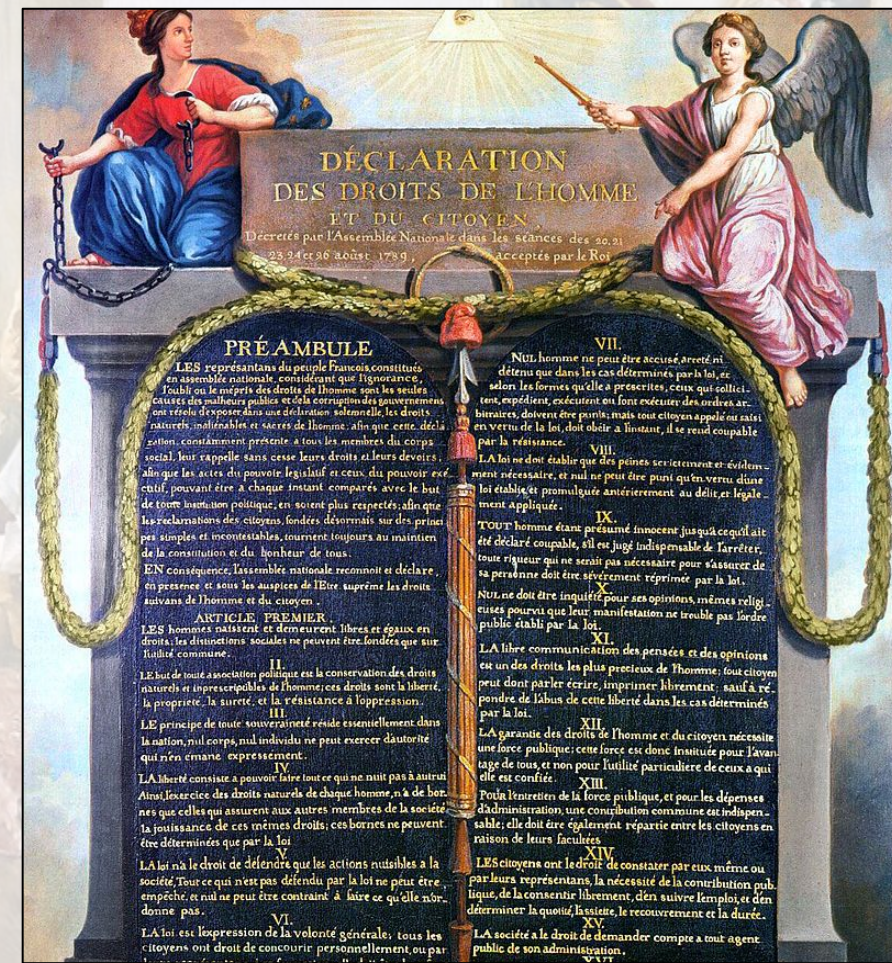 DÉCLARATION
DES DROITS DE L'HOMME
ET DU CITOYEN
Décretés par l'Assemblée Nationale dans les séances des 20, 21
23, 24 et 26 aoûst 1789, acceptés par le Roi
PRÉAMBULE
LES représantans du peuple Francois, constitués
en assemblée nationale, considérant que l'ignorance,
l'oubli ou le mépris des droits de l'homme sont les seules
causes des malheurs publics et de la corruption des gouvernemens
ont résolu d'exposer dans une déclaration solemnelle, les droits
naturels, inaliénables et sacrés de l'homme; afin que cette décla-
ration, constamment présente a tous les membres du corps
social, leur rappelle sans cesse leurs droits et leurs devoirs,
afin que les actes du pouvoir legislatif et ceux du pouvoir exé-
cutif, pouvant être a chaque instant comparés avec le but
de toute institution politique, en soient plus respectés; afin que
les reclamations des citoyens, fondées désormais sur des princi-
pes simples et incontestables, tournent toujours au maintien
de la constitution et du bonheur de tous.
EN conséquence, l'assemblée nationale reconnoit et déclare,
en presence et sous les auspices de l'Etre suprême les droits
suivans de l'homme et du citoyen.
ARTICLE PREMIER.
LES hommes naissent et demeurent libres et égaux en
droits; les distinctions sociales ne peuvent être fondées que sur
l'utilité commune.
II.
LE but de toute association politique est la conservation des droits
naturels et inprescriptibles de l'homme; ces droits sont la liberté,
la proprieté, la sureté, et la résistance à l'oppression.
III.
LE principe de toute souveraineté réside essentiellement dans
la nation, nul corps, nul individu ne peut exercer d'autorité
qui n'en émane expressement.
IV.
LA liberté consiste a pouvoir faire tout ce qui ne nuit pas à autrui
Ainsi, l'exercice des droits naturels de chaque homme, n'a de bor-
nes que celles qui assurent aux autres membres de la société
la jouissance de ces mêmes droits; ces bornes ne peuvent
être déterminées que par la loi
V.
LA loi n'a le droit de défendre que les actions nuisibles a la
société, Tout ce qui n'est pas défendu par la loi ne peut être
empêché, et nul ne peut être contraint à faire ce qu'elle n'or-
donne pas.
VI.
LA loi est l'expression de la volonté générale; tous les
citoyens ont droit de concourir personnellement, ou par
VII.
NUL homme ne peut être accusé, arreté, ni
détenu que dans les cas déterminés par la loi, et
selon les formes qu'elle a prescrites, ceux qui sollici-
tent, expédient, exécutent ou font exécuter des ordres ar-
bitraires, doivent être punis; mais tout citoyen appelé ou saisi
en vertu de la loi, doit obéir a l'instant, il se rend coupable
par la résistance.
VIII.
LA loi ne doit établir que des peines strictement et évidem-
ment nécessaire, et nul ne peut être puni qu'en vertu d'une
loi établie, et promulguée antérierement au délit, et légale-
ment appliquée.
IX.
TOUT homme étant présumé innocent jusqu'à ce qu'il ait
été déclaré coupable, s'il est jugé indispensable de l'arrêter,
toute rigueur qui ne serait pas nécessaire pour s'assurer de
sa personne doit être sévèrement réprimée par la loi.
X.
NUL ne doit être inquiété pour ses opinions, mêmes religi-
euses pourvu que leur manifestation ne trouble pas l'ordre
public établi par la loi.
XI.
LA libre communication des pensées et des opinions
est un des droits les plus precieux de l'homme; tout citoyen
peut dont parler écrire, imprimer librement; sauf à ré-
pondre de l'abus de cette liberté dans les cas déterminés
par la loi.
XII.
LA garantie des droits de l'homme et du citoyen nécessite
une force publique; cette force est donc instituée pour l'avan-
tage de tous, et non pour l'utilité particuliere de ceux a qui
elle est confiée.
XIII.
Pour l'entretien de la force publique, et pour les dépenses
d'administration, une contribution commune est indispen-
sable; elle doit être également répartie entre les citoyens en
raison de leurs facultées
XIV.
LES citoyens ont le droit de constater par eux même ou
par leurs représentans, la nécessité de la contribution pub-
lique, de la consentir librement, d'en suivre l'emploi, et d'en
déterminer la quotité, l'assiette, le recouvrement et la durée.
XV.
LA société a le droit de demander compte a tout agent
public de son administration.
XVI.